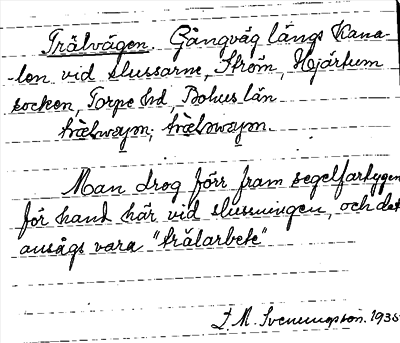 Trälvägen. Gångväg längs Kana-
-len vid slussarne, Ström, Hjärtum
socken, Torpe hd, Bohus län
Man drog förr fram segelfartygen
för hand här vid slussningen, och det
ansågs vara "trälarbete"
1935